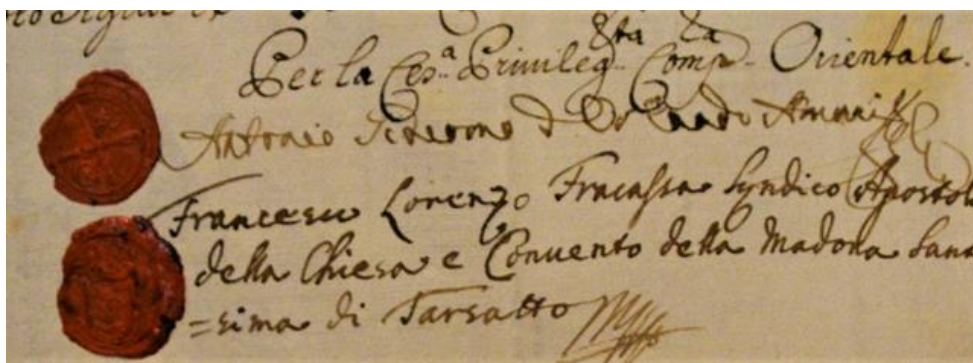 Per la Ces.ª Privileg.sta Comp.ia Orientale.
Antonio de Amtli
Francesco Lorenzo Fracassa Syndico Apostol
della Chiesa e Convento della Madona Sanc
=sima di Tarsatto